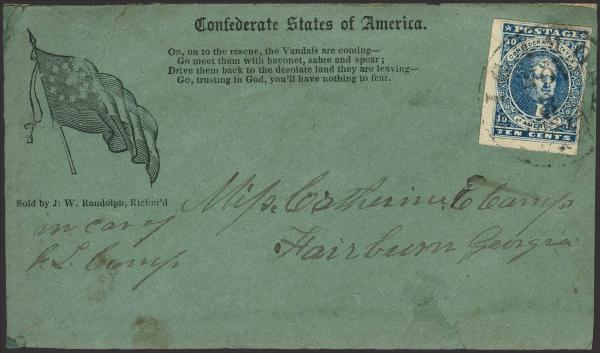 Confederate States of America.
On, on to the rescue, the Vandals are coming—
Go meet them with bayonet, sabre and spear;
Drive them back to the desolate land they are leaving—
Go, trusting in God, you'll have nothing to fear.
POSTAGE
10 10
CONFEDERATE STATES
OF AMERICA
10
TEN CENTS
Sold by J. W. Randolph, Richm'd
Miss Catherine E Camp
in car of
Fairburn Georgia
Camp